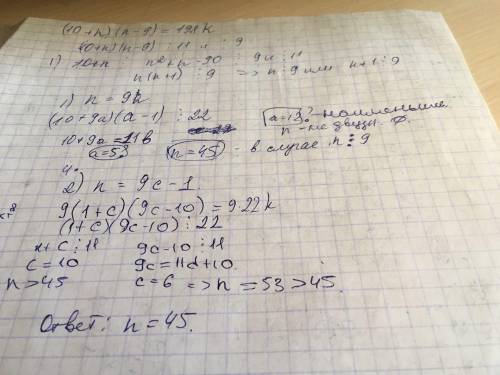 (10+n)(n-9) = 198k
(10+n)(n-9) ⋮ 11 и ⋮ 9
1) 10+n n²+n-90 ⋮ 9 и ⋮ 11
n(n+1) ⋮ 9 => n ⋮ 9 или n+1 ⋮ 9
1) n = 9k
(10+9a)(a-1) ⋮ 22 a=12 - наименьшее.
10+9a = 11b n - не двузн. ∅.
a=5 n=45 - в случае n ⋮ 9
2) n = 9c-1
9(1+c)(9c-10) = 9·22k
(1+c)(9c-10) ⋮ 22
1+c ⋮ 11 9c-10 ⋮ 11
c=10 9c=11d+10
n>45 c=6 => n=53>45.
Ответ: n=45.